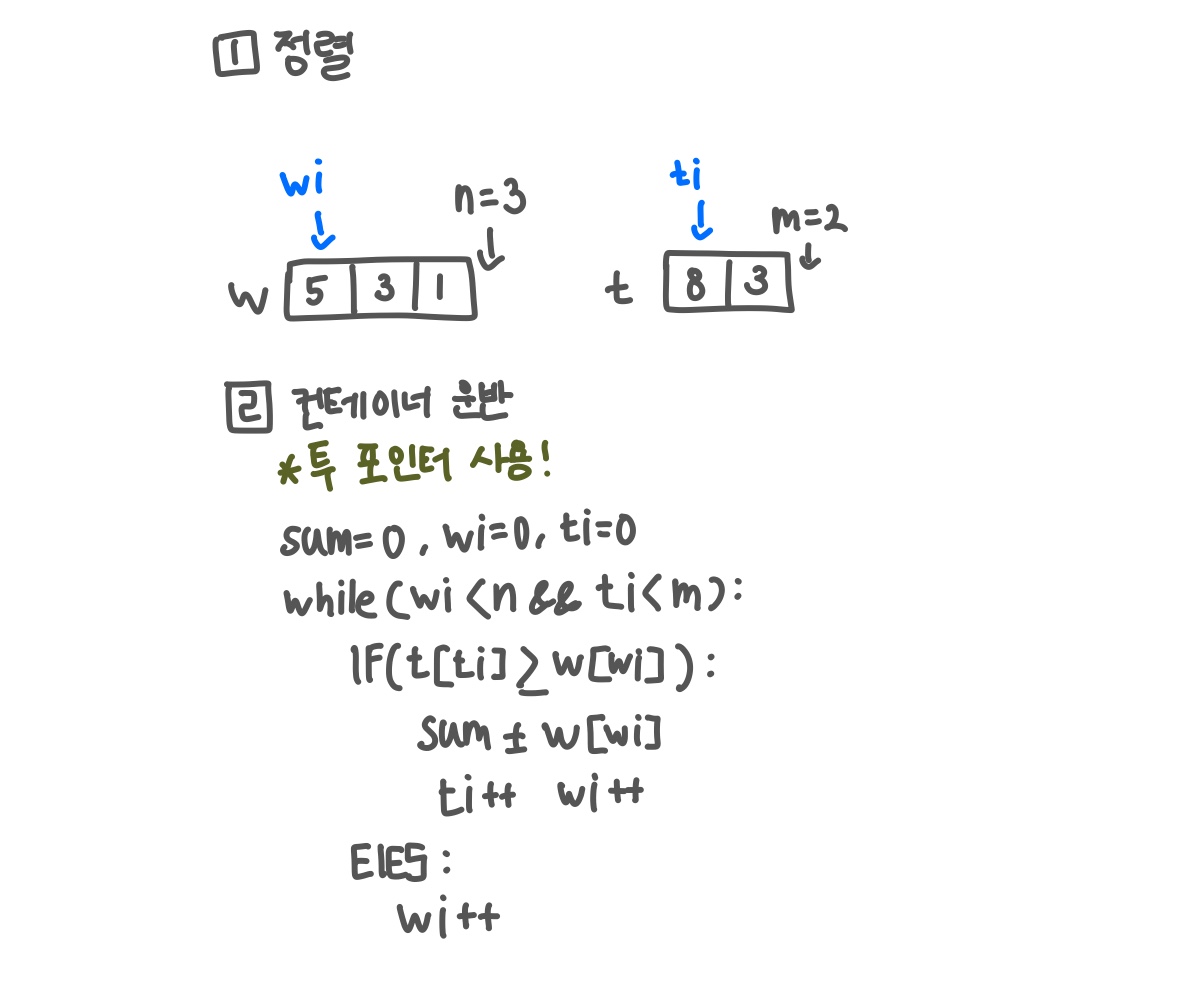 1 정렬
wi
n=3
ti
m=2
w 5 3 1
t 8 3
2 컨테이너 운반
*투 포인터 사용!
sum=0, wi=0, ti=0
while(wi<n && ti<m):
IF(t[ti] ≥ w[wi]):
sum ± w[wi]
ti++ wi++
ElES:
wi++